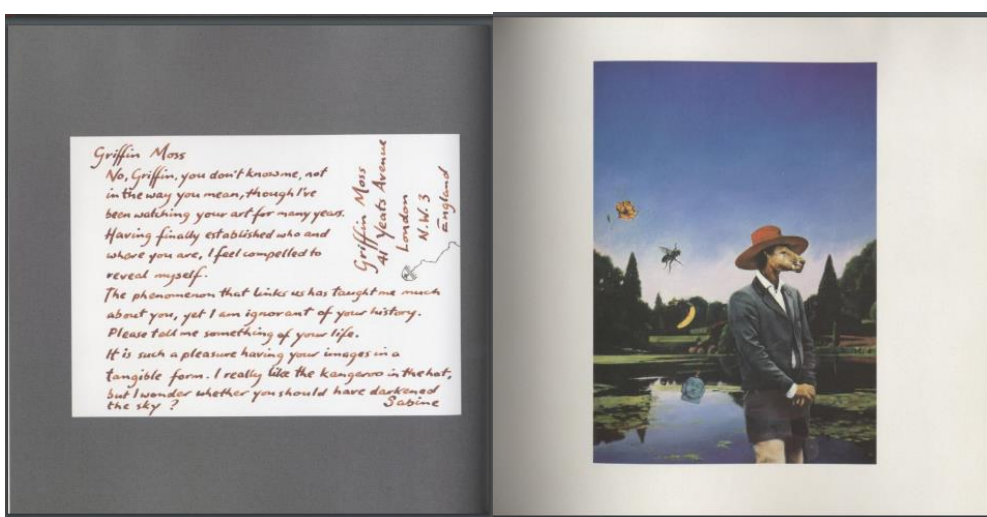 Griffin Moss
No, Griffin, you don't know me, not
in the way you mean, though I've
been watching your art for many years.
Having finally established who and
where you are, I feel compelled to
reveal myself.
The phenomenon that links us has taught me much
about you, yet I am ignorant of your history.
Please tell me something of your life.
It is such a pleasure having your images in a
tangible form. I really like the kangaroo in the hat,
but I wonder whether you should have darkened
the sky?
Sabine
Griffin Moss
41 Yeats Avenue
London
N.W.3
England